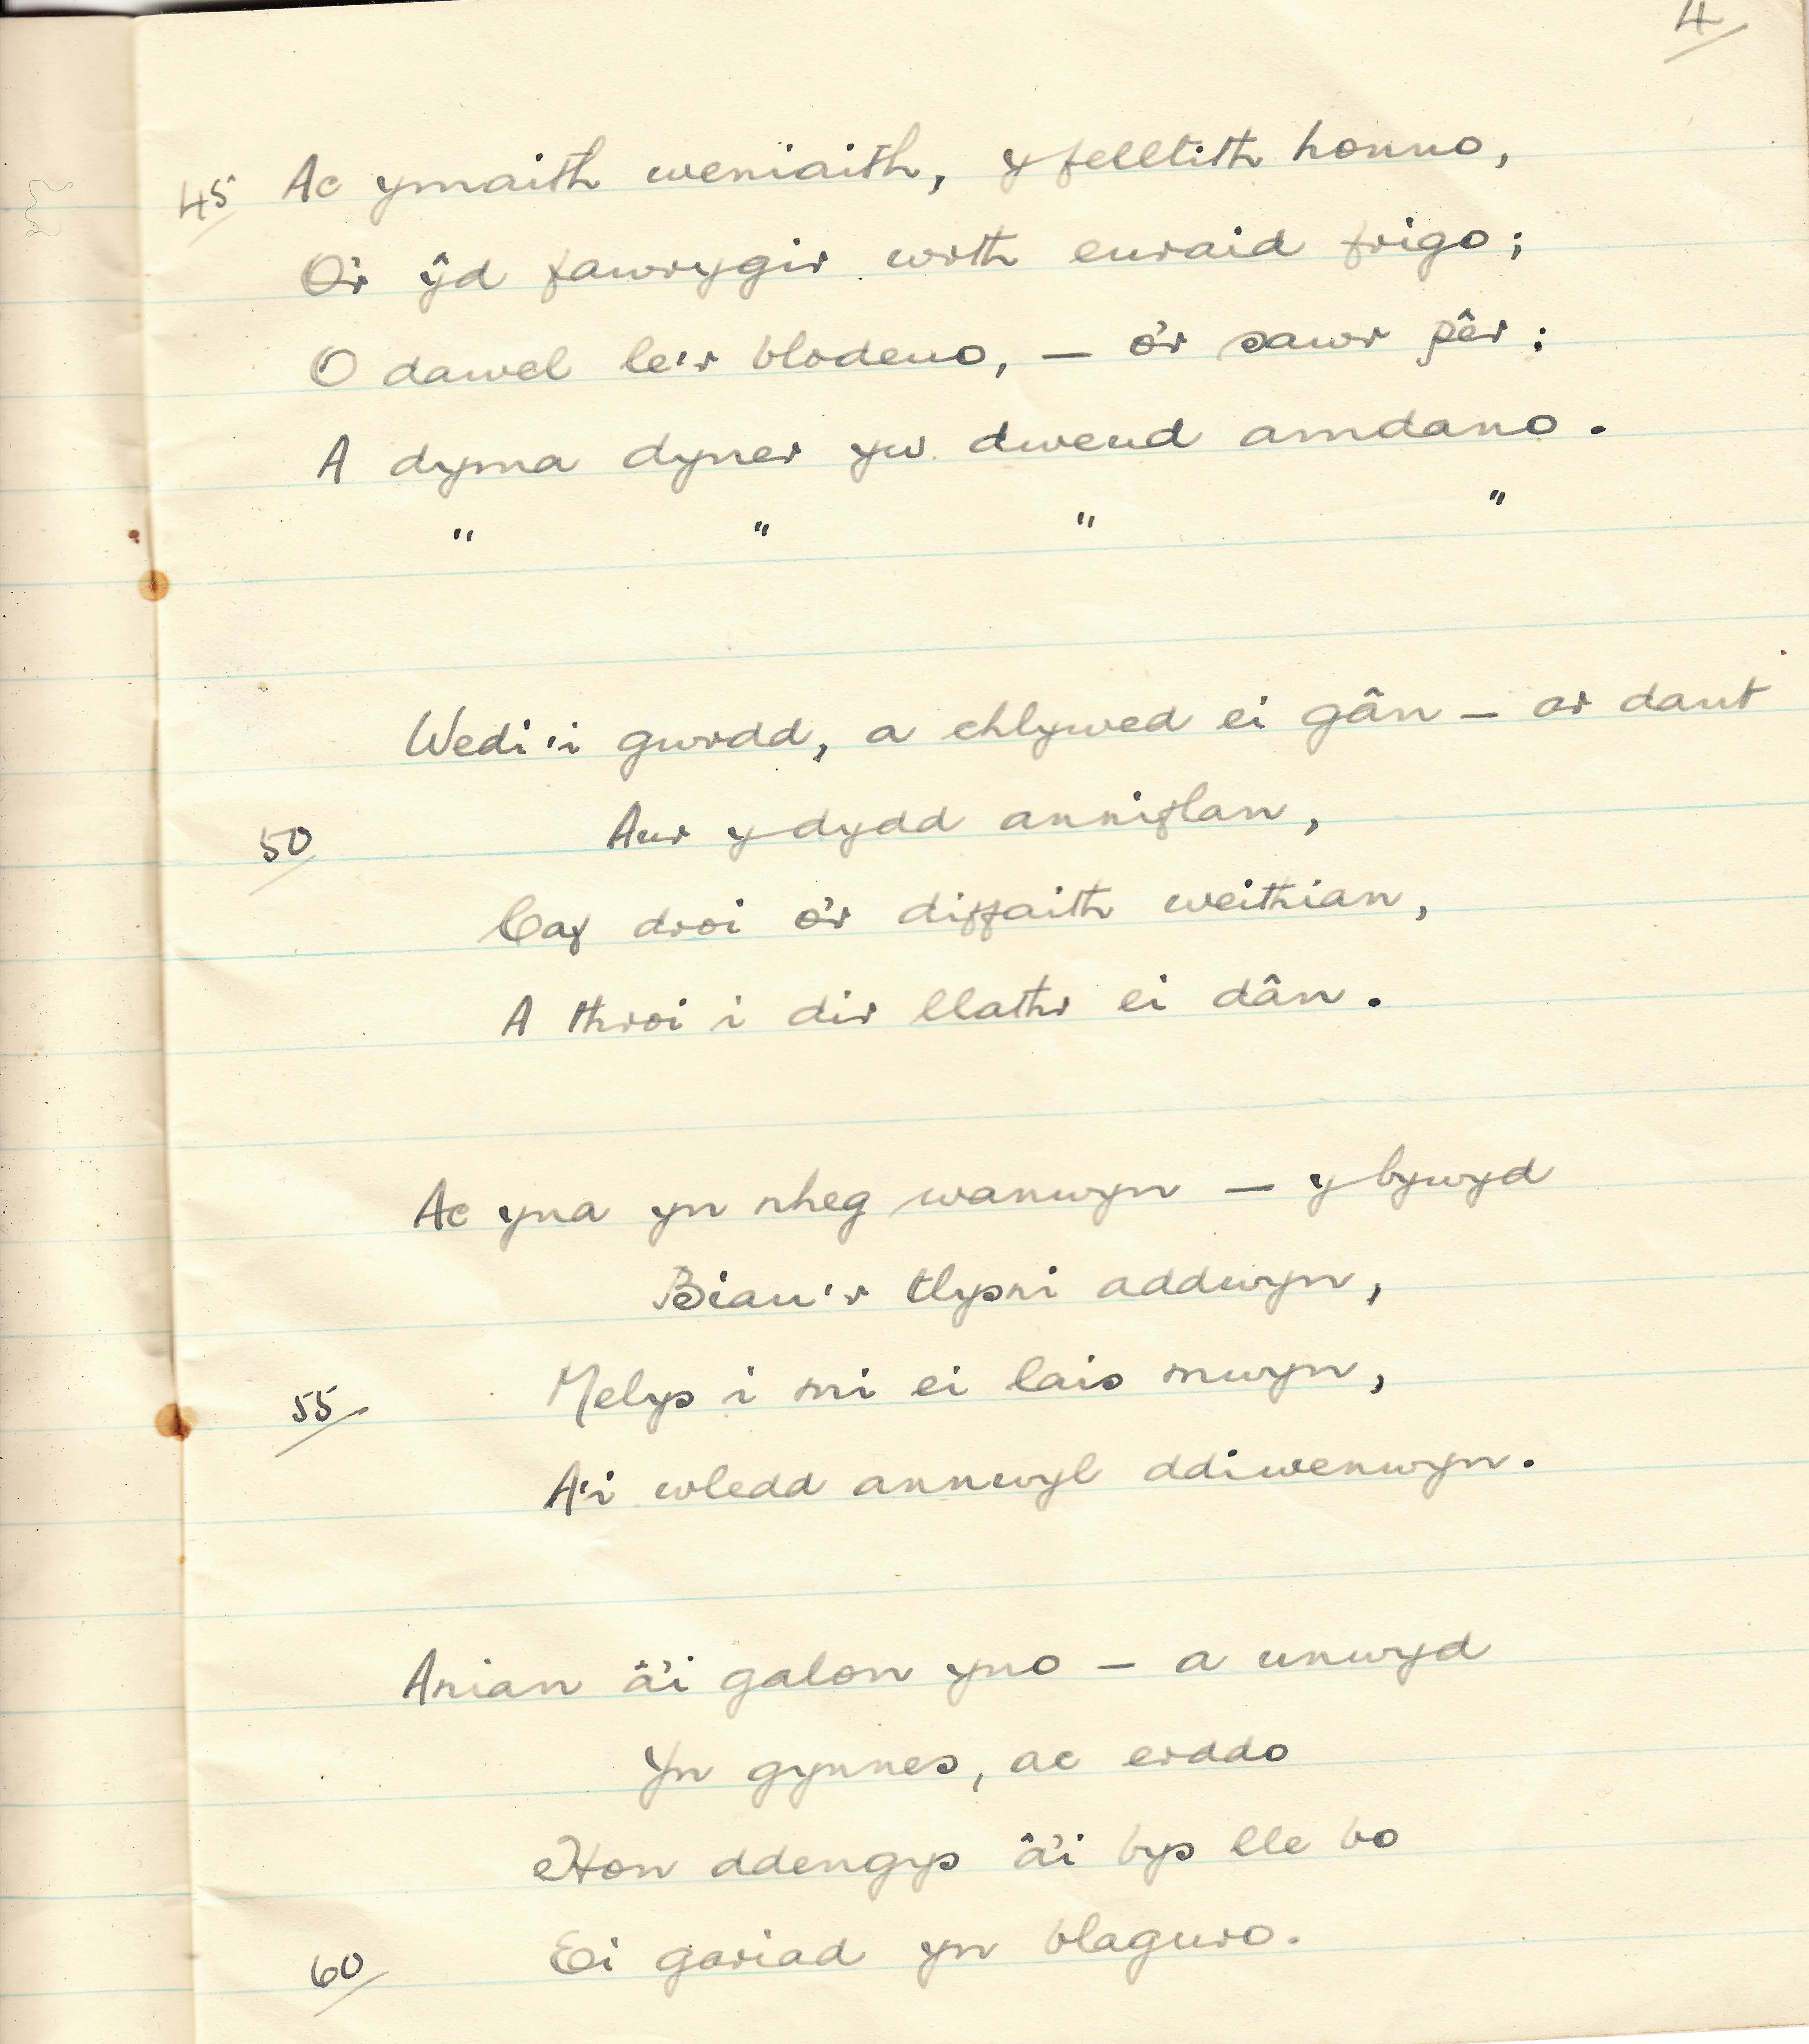 4
45 Ac ymaith weniaith, y felltith honno,
O'r ŷd fawrygir wrth euraid frigo;
O dawel le'r blodeuo, — o'r sawr pêr:
A dyma dyner yw dweud amdano.
" " " "
Wedi'i gwrdd, a chlywed ei gân — ar dant
50 Aur y dydd anniflan,
Caf droi o'r diffaith weithian,
A throi i dir llathr ei dân.
Ac yna yn rheg wanwyn — y bywyd
Biau'r tlysni addwyn,
55 Melys i mi ei lais mwyn,
A'i wledd annwyl ddiwenwyn.
Anian â'i galon yno — a unwyd
Yn gynnes, ac erddo
Hon ddengys â'i bys lle bo
60 Ei gariad yn blaguro.